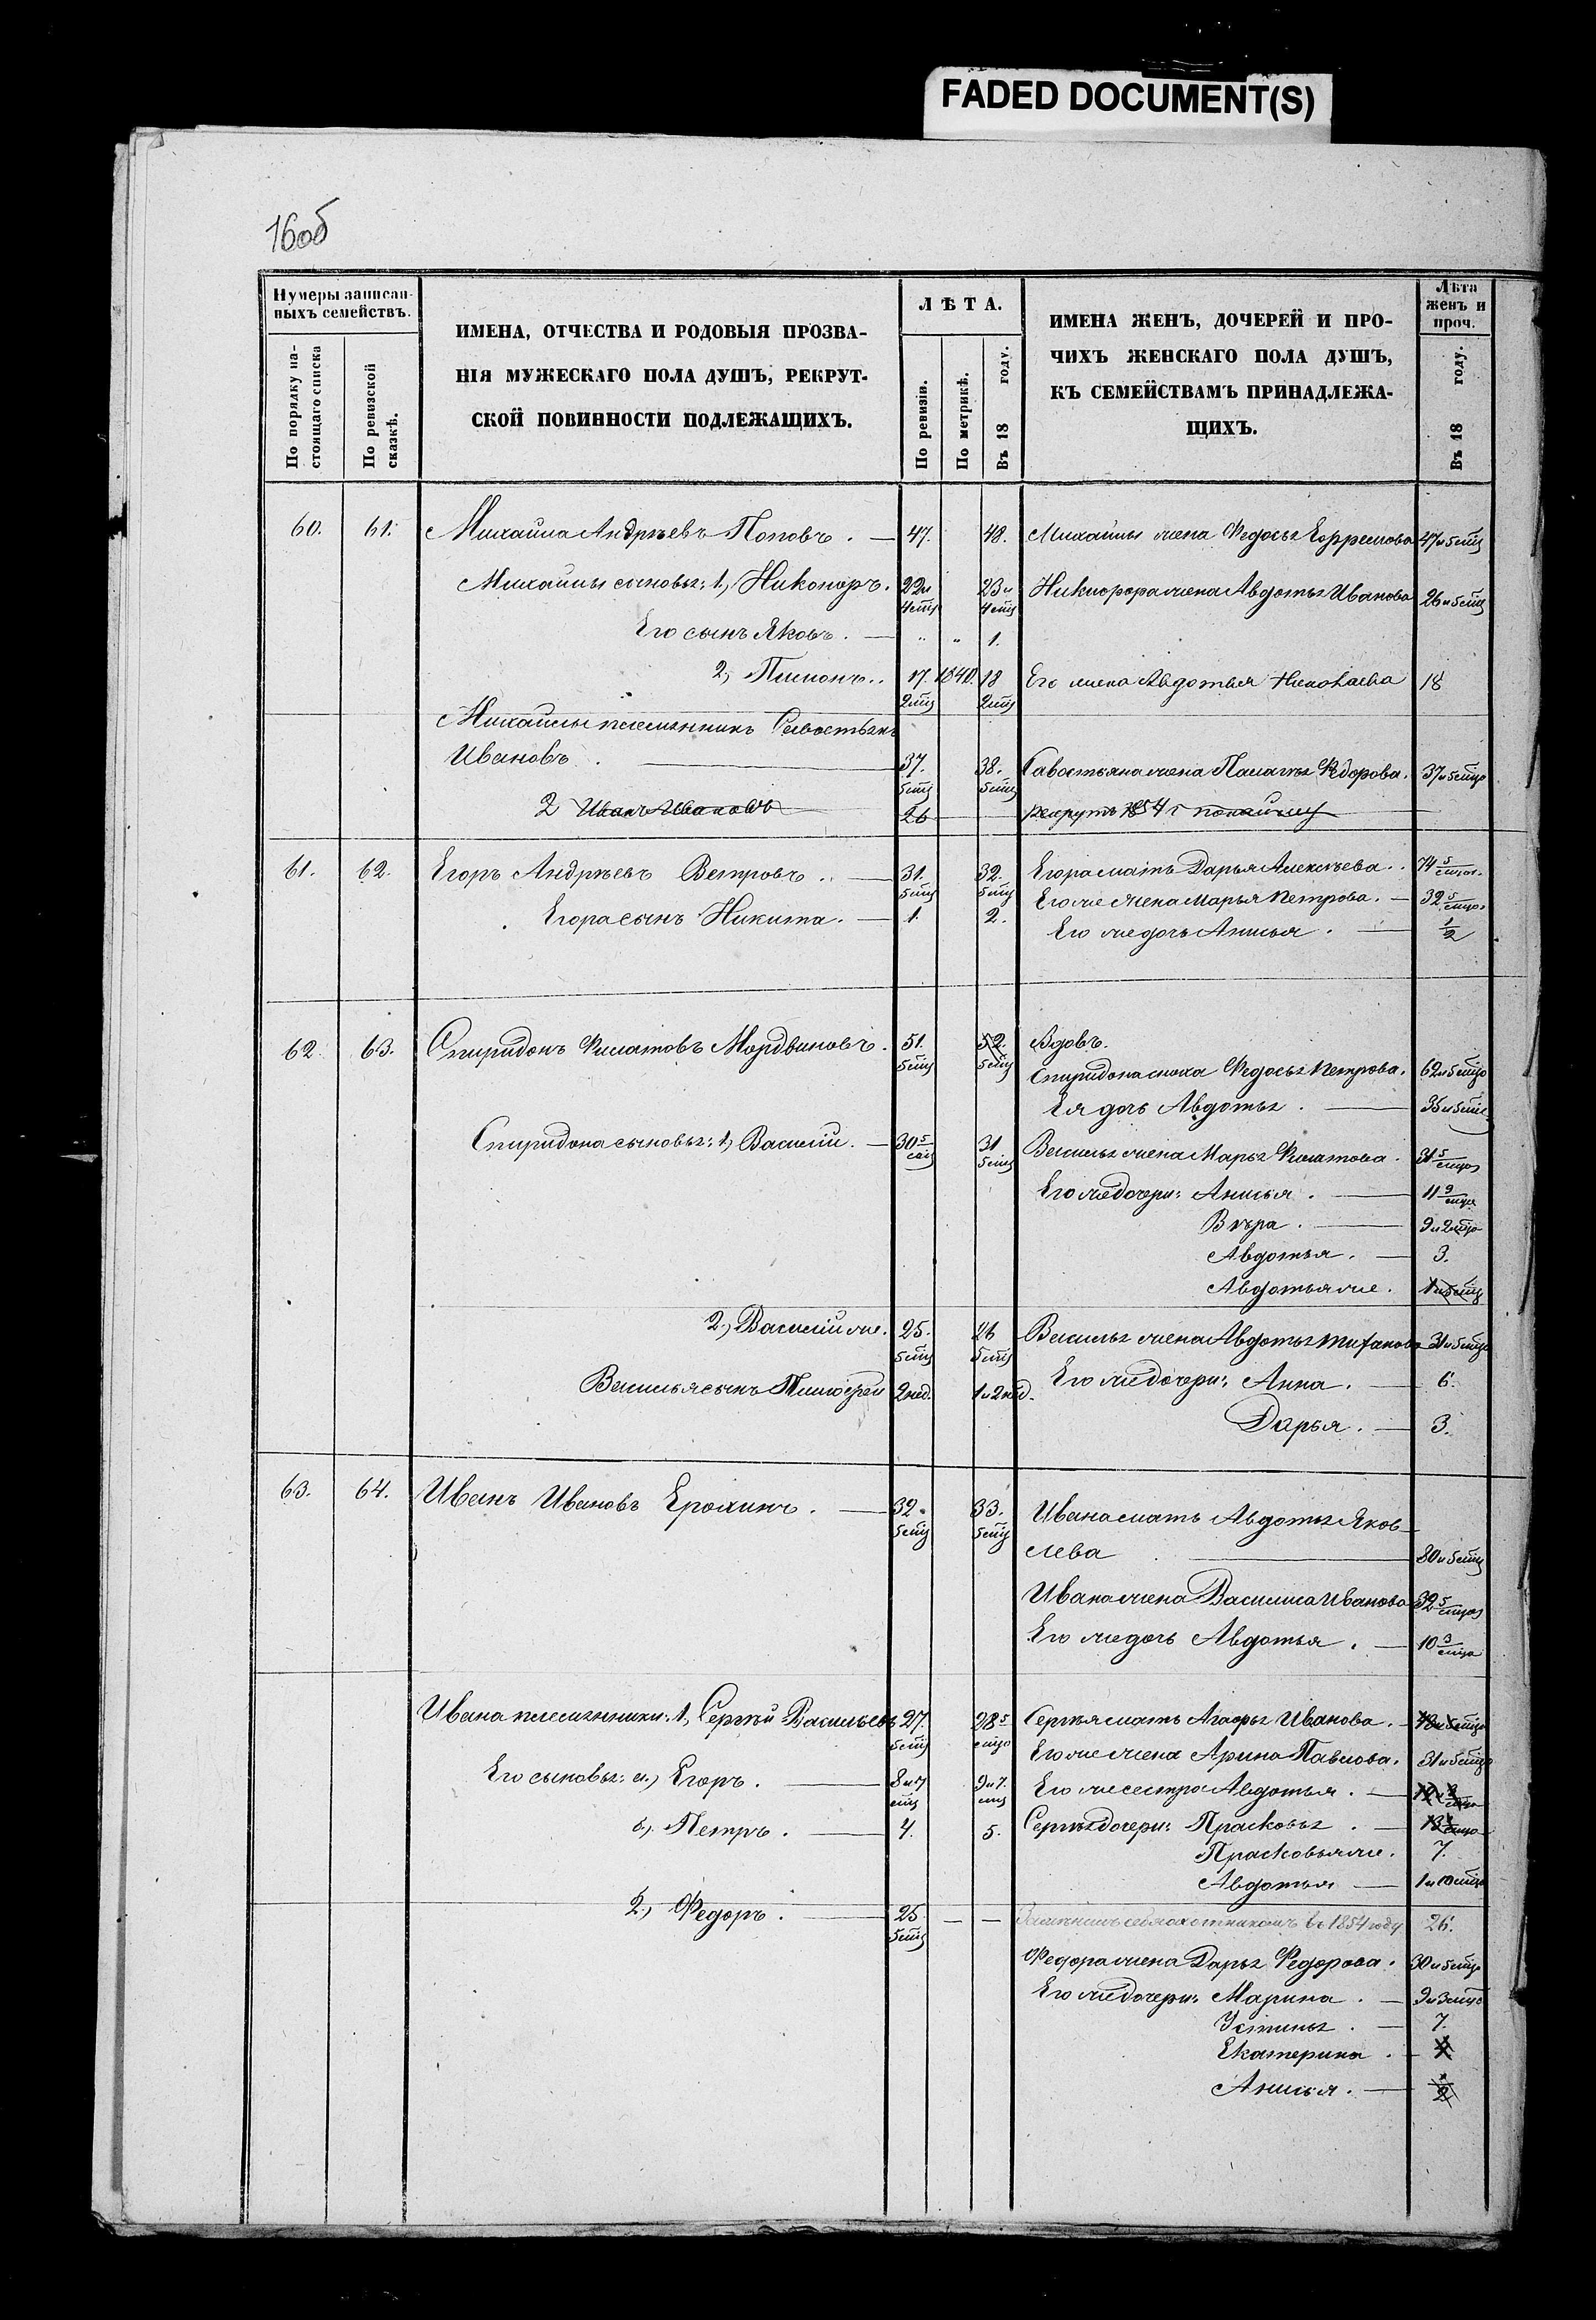 FADED DOCUMENT(S)
16об
Нумеры записан-
ныхъ семействъ.
По порядку на-
стоящаго списка
По ревизской
сказкѣ.
ИМЕНА, ОТЧЕСТВА И РОДОВЫЯ ПРОЗВА-
НІЯ МУЖЕСКАГО ПОЛА ДУШЪ, РЕКРУТ-
СКОЙ ПОВИННОСТИ ПОДЛЕЖАЩИХЪ.
ЛѢТА.
По ревизіи.
По метрикѣ.
Въ 18 году.
ИМЕНА ЖЕНЪ, ДОЧЕРЕЙ И ПРО-
ЧИХЪ ЖЕНСКАГО ПОЛА ДУШЪ,
КЪ СЕМЕЙСТВАМЪ ПРИНАДЛЕЖА-
ЩИХЪ.
Лѣта
женъ и
проч.
Въ 18 году.
60. 61. Михайла Андрѣевъ Поповъ. 47. 48. Михайлы жена Федосья Ефремова 47 и 5 мцъ
Михайлы сыновья: 1, Никоноръ. 22 и 4 мцъ 23 и 4 мцъ Никифора жена Авдотья Иванова 26 и 5 мцъ
Его сынъ Яковъ. " " 1.
2, Пимонъ. 17. 2 мцъ 1840. 18 2 мцъ Его жена Авдотья Николаева 18
Михайлы племянникъ Севостьянъ
Ивановъ. 37. 5 мцъ 38. 5 мцъ Савостьяна жена Палагѣя Федорова. 37 и 5 мцъ
2 Иванъ Ивановъ 26 рекрутъ 1854 г
61. 62. Егоръ Андрѣевъ Ветровъ. 31. 5 мцъ 32. 5 мцъ Егора мать Дарья Алексѣева. 74 5 мцов.
Его же жена Марья Петрова. 32 5 мцов.
Егора сынъ Никита. 1. 2. Его же дочь Анисья. 1/2
62 63. Спиридонъ Филатовъ Мордвиновъ. 51. 5 мцъ 52. 5 мцъ Вдовъ.
Спиридона сноха Федосья Петрова. 62 и 5 мцъ
Ея дочь Авдотья. 35 и 5 мцъ
Спиридона сыновья: 1, Василій. 30 5 мцъ 31 5 мцъ Василья жена Марья Филатова. 31 5 мцов
Его же дочери: Анисья. 11 9 мцъ
Вѣра. 9 и 2 мцъ
Авдотья. 3.
Авдотья же. 1 и 5 мцъ
2, Василій же. 25. 5 мцъ 26 5 мцъ Василья жена Авдотья 31 и 5 мцъ
Василья сынъ Тимофей 2 нед. 1 и 2 нед. Его же дочери: Анна. 6.
Дарья. 3.
63. 64. Иванъ Ивановъ Ерохинъ. 32. 5 мцъ 33. 5 мцъ Ивана мать Авдотья Яков-
лева 80 и 5 мцъ
Ивана жена Василиса Иванова 32 5 мцов
Его же дочь Авдотья. 10 3 мцъ
Ивана племянники: 1, Сергѣй Васильевъ 27. 5 мцъ 28 5 мцъ Сергѣя мать Агафья Иванова. 48 и 5 мцъ
Его же жена Арина Павлова. 31 и 5 мцъ
Его сыновья: а, Егоръ. 8 и 7 мцъ 9 и 7. мцъ Его же сестра Авдотья.
б, Петръ. 4. 5. Сергѣя дочери: Прасковья.
Прасковья же. 7.
Авдотья 1 и 10 мцъ
2, Федоръ. 25 5 мцъ – – охотникомъ въ 1854 году 26.
Федора жена Дарья Федорова. 30 и 5 мцъ
Его же дочери: Марина. 9 и 3 мцъ
Устинья. 7.
Екатерина. 4
Анисья. 1/2